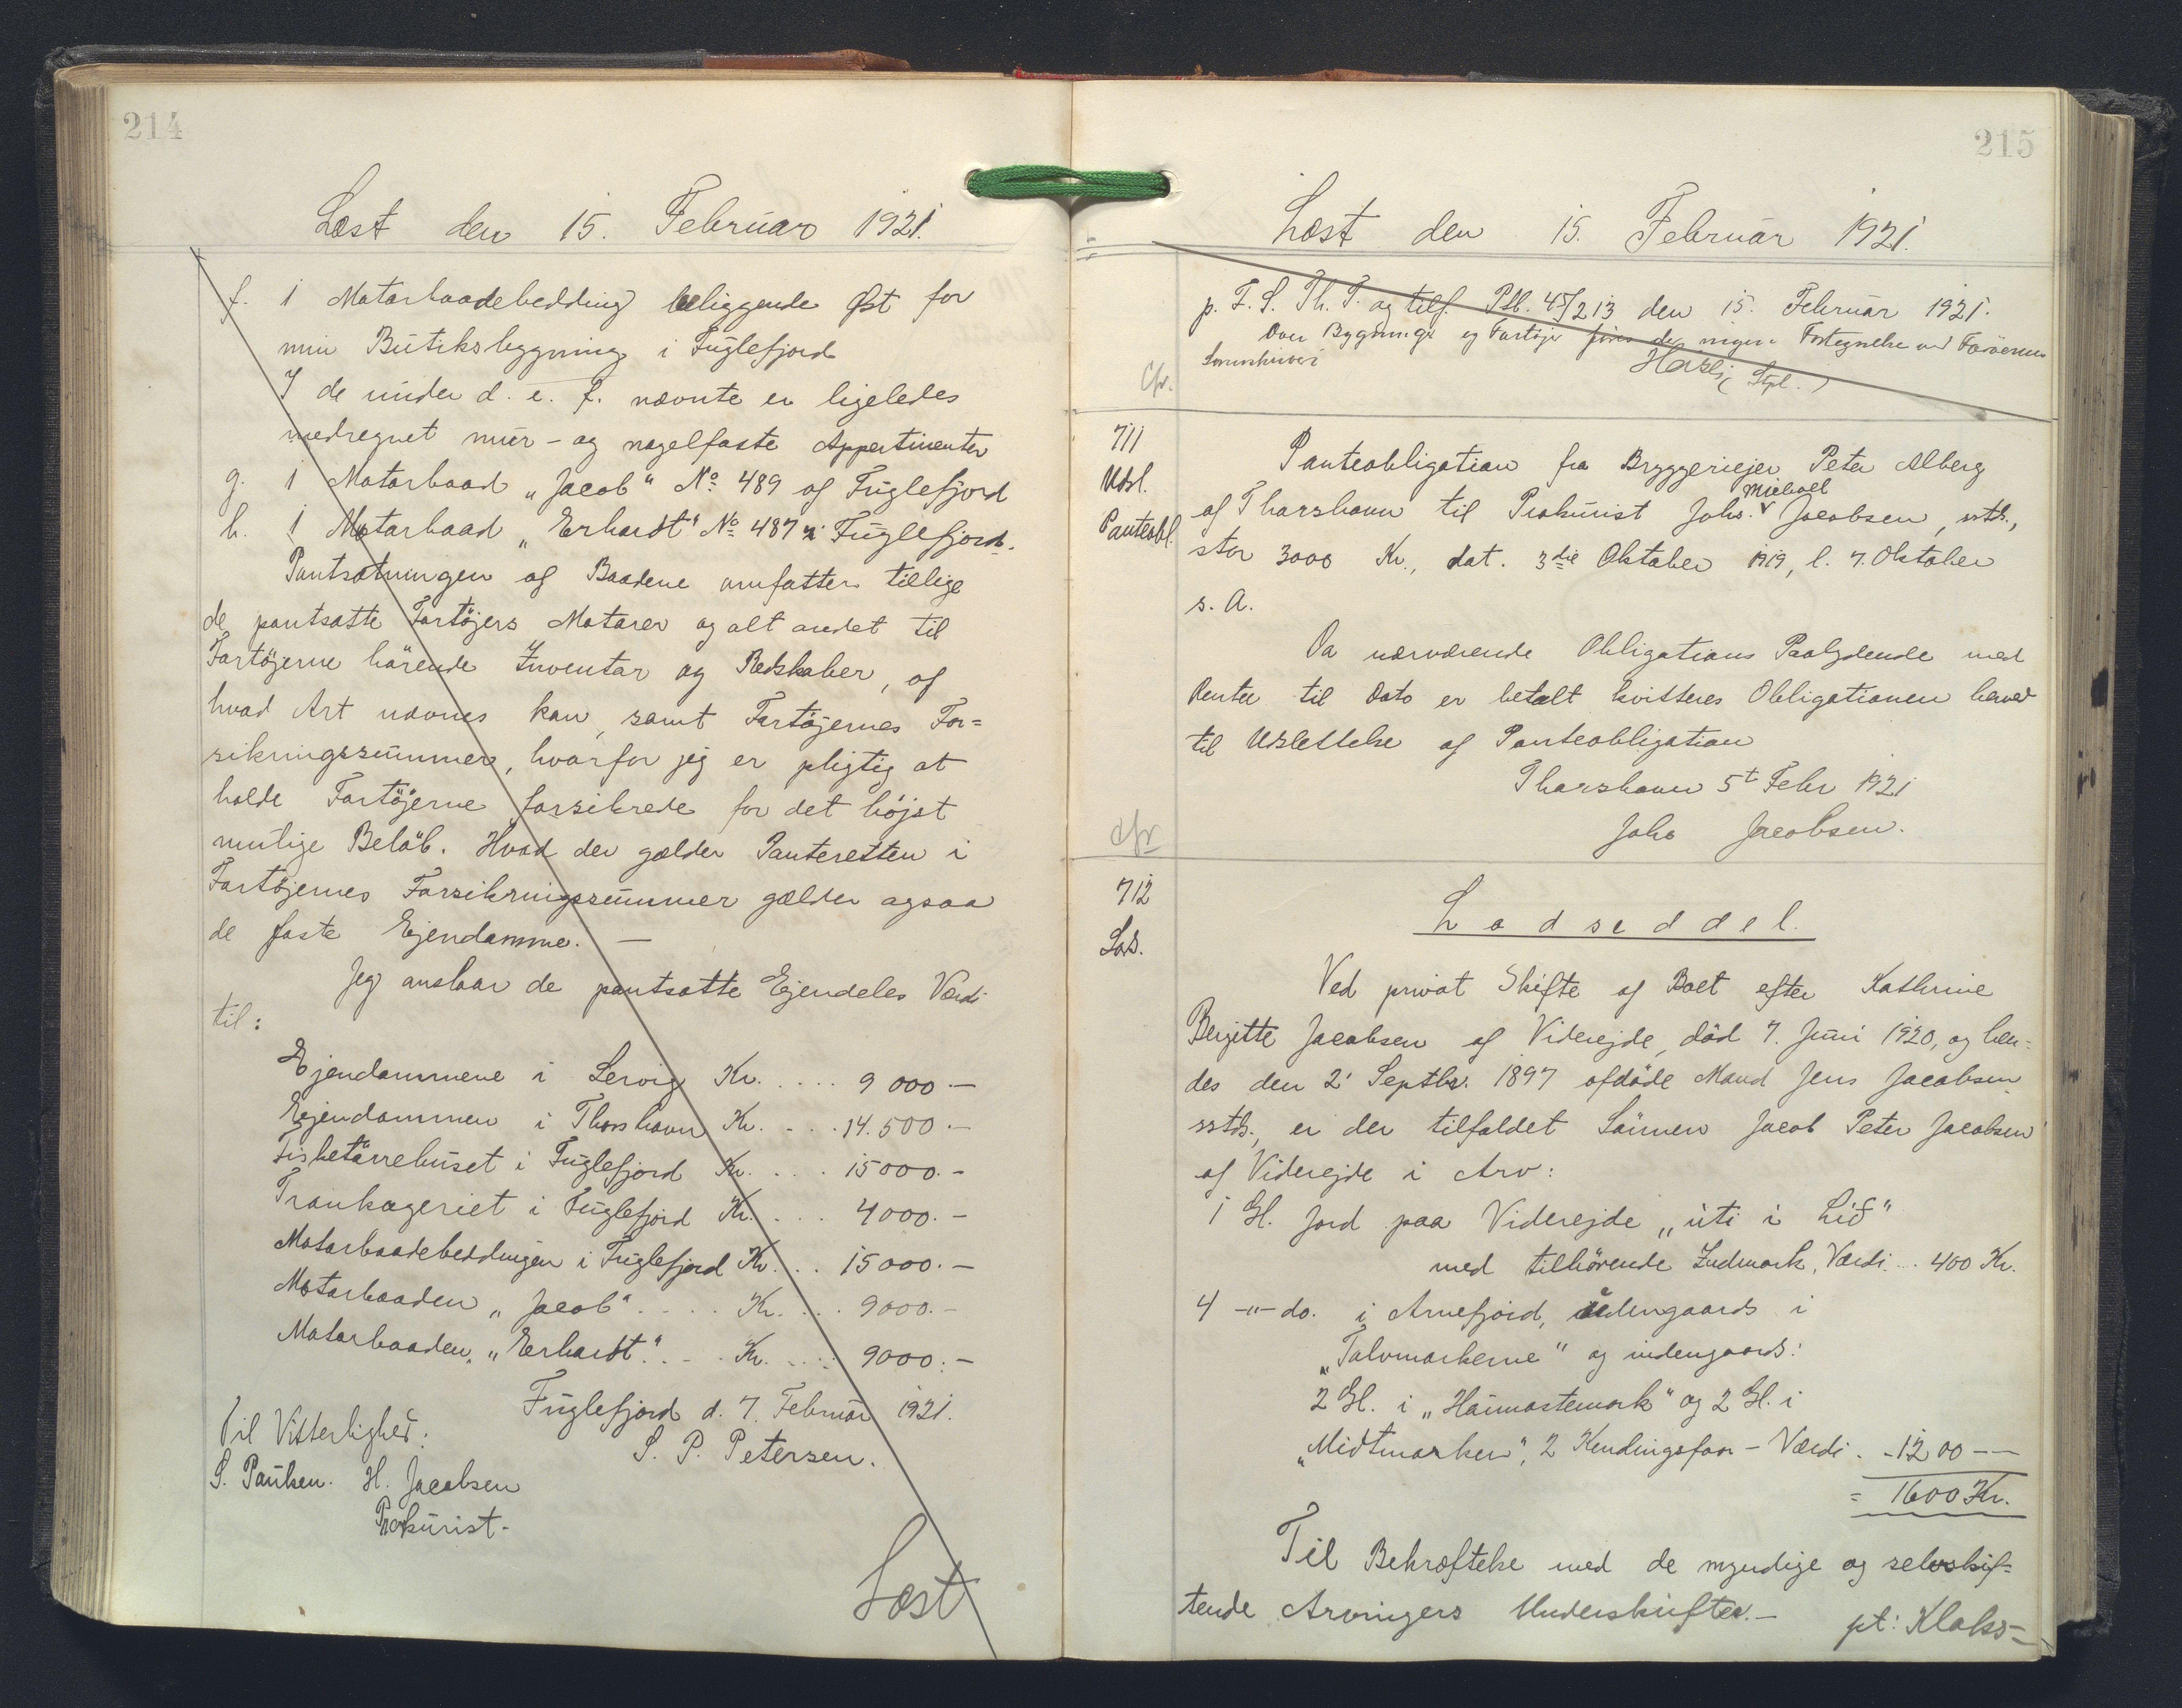 214
Læst den 15. Februar 1921.
f. 1 Motorbaadebedding beliggende Øst for
min Butiksbygning i Fuglefjord
I de under d. e. f. nævnte er ligeledes
medregnet mur- og nagelfaste Appertinenter
g. 1 Motorbaad „Jacob" No. 489 af Fuglefjord
h. 1 Motorbaad „Erhardt" No. 487 Fuglefjord.
Pantsætningen af Baadene omfatter tillige
de pantsatte Fartöjers Motorer og alt andet til
Fartöjerne hörende Inventar og Redskaber, af
hvad Art nævnes kan, samt Fartöjernes For=
sikringssummer, hvorfor jeg er pligtig at
holde Fartöjerne forsikrede for det höjst
mulige Belöb. Hvad der gælder Panteretten i
Fartöjernes Forsikringssummer gælder ogsaa
de faste Ejendomme. —
Jeg anslaar de pantsatte Ejendeles Værdi
til:
Ejendommene i Lervig Kr. .... 9 000.—
Ejendommen i Thorshavn Kr. ... 14.500.—
Fisketörrehuset i Fuglefjord Kr. ... 15000.—
Trankogeriet i Fuglefjord Kr. ... 4000.—
Motorbaadebeddingen i Fuglefjord Kr. .. 15000.—
Motorbaaden „Jacob" .... Kr. ... 9000.—
Motorbaaden „Erhardt" ... Kr. .... 9000.—
Fuglefjord d. 7. Februar 1921.
S. P. Petersen.
Til Vitterlighed:
S. Paulsen. H. Jacobsen
Prokurist.
Læst
215
Læst den 15. Februar 1921.
p. F. S. Th. T. og tilf. Ptb. 45/213 den 15. Februar 1921.
Over Bygninger og Fartöjer föres der ingen Fortegnelse ved Færöernes
Sorenskriveri
(Stpl.)
Cfr.
711
Udsl.
Panteobl.
Panteobligation fra Bryggeriejer Peter Alberg
af Thorshavn til Prokurist Johs. Michael Jacobsen, sstds.,
stor 3000 Kr., dat. 3die Oktober 1919, l. 7. Oktober
s. A.
Da nærværende Obligations Paalydende med
Renter til Dato er betalt kvitteres Obligationen herved
til Udslettelse af Panteobligation
Thorshavn 5t Febr 1921
Johs Jacobsen.
Cfr
712
Lods.
Lodseddel.
Ved privat Skifte af Boet efter Kathrine
Bergitte Jacobsen af Viderejde, död 7. Juni 1920, og hen=
des den 2' Septbr. 1897 afdöde Mand Jens Jacobsen
sstds., er der tilfaldet Sönnen Jacob Peter Jacobsen
af Viderejde i Arv:
1 Gl. Jord paa Viderejde „úti i Lið"
med tilhörende Indmark, Værdi ... 400 Kr.
4 -"- do. i Arnefjord, udengaards i
„Tolvmarkerne" og indengaards:
2 Gl. i „Haimastemark" og 2 Gl. i
„Midtmarken", 2 Kendingsfaar - Værdi . - 1200 -—
= 1600 Kr.
Til Bekræftelse med de myndige og selvskif=
tende Arvingers Underskrifter.—
pt: Klaks=